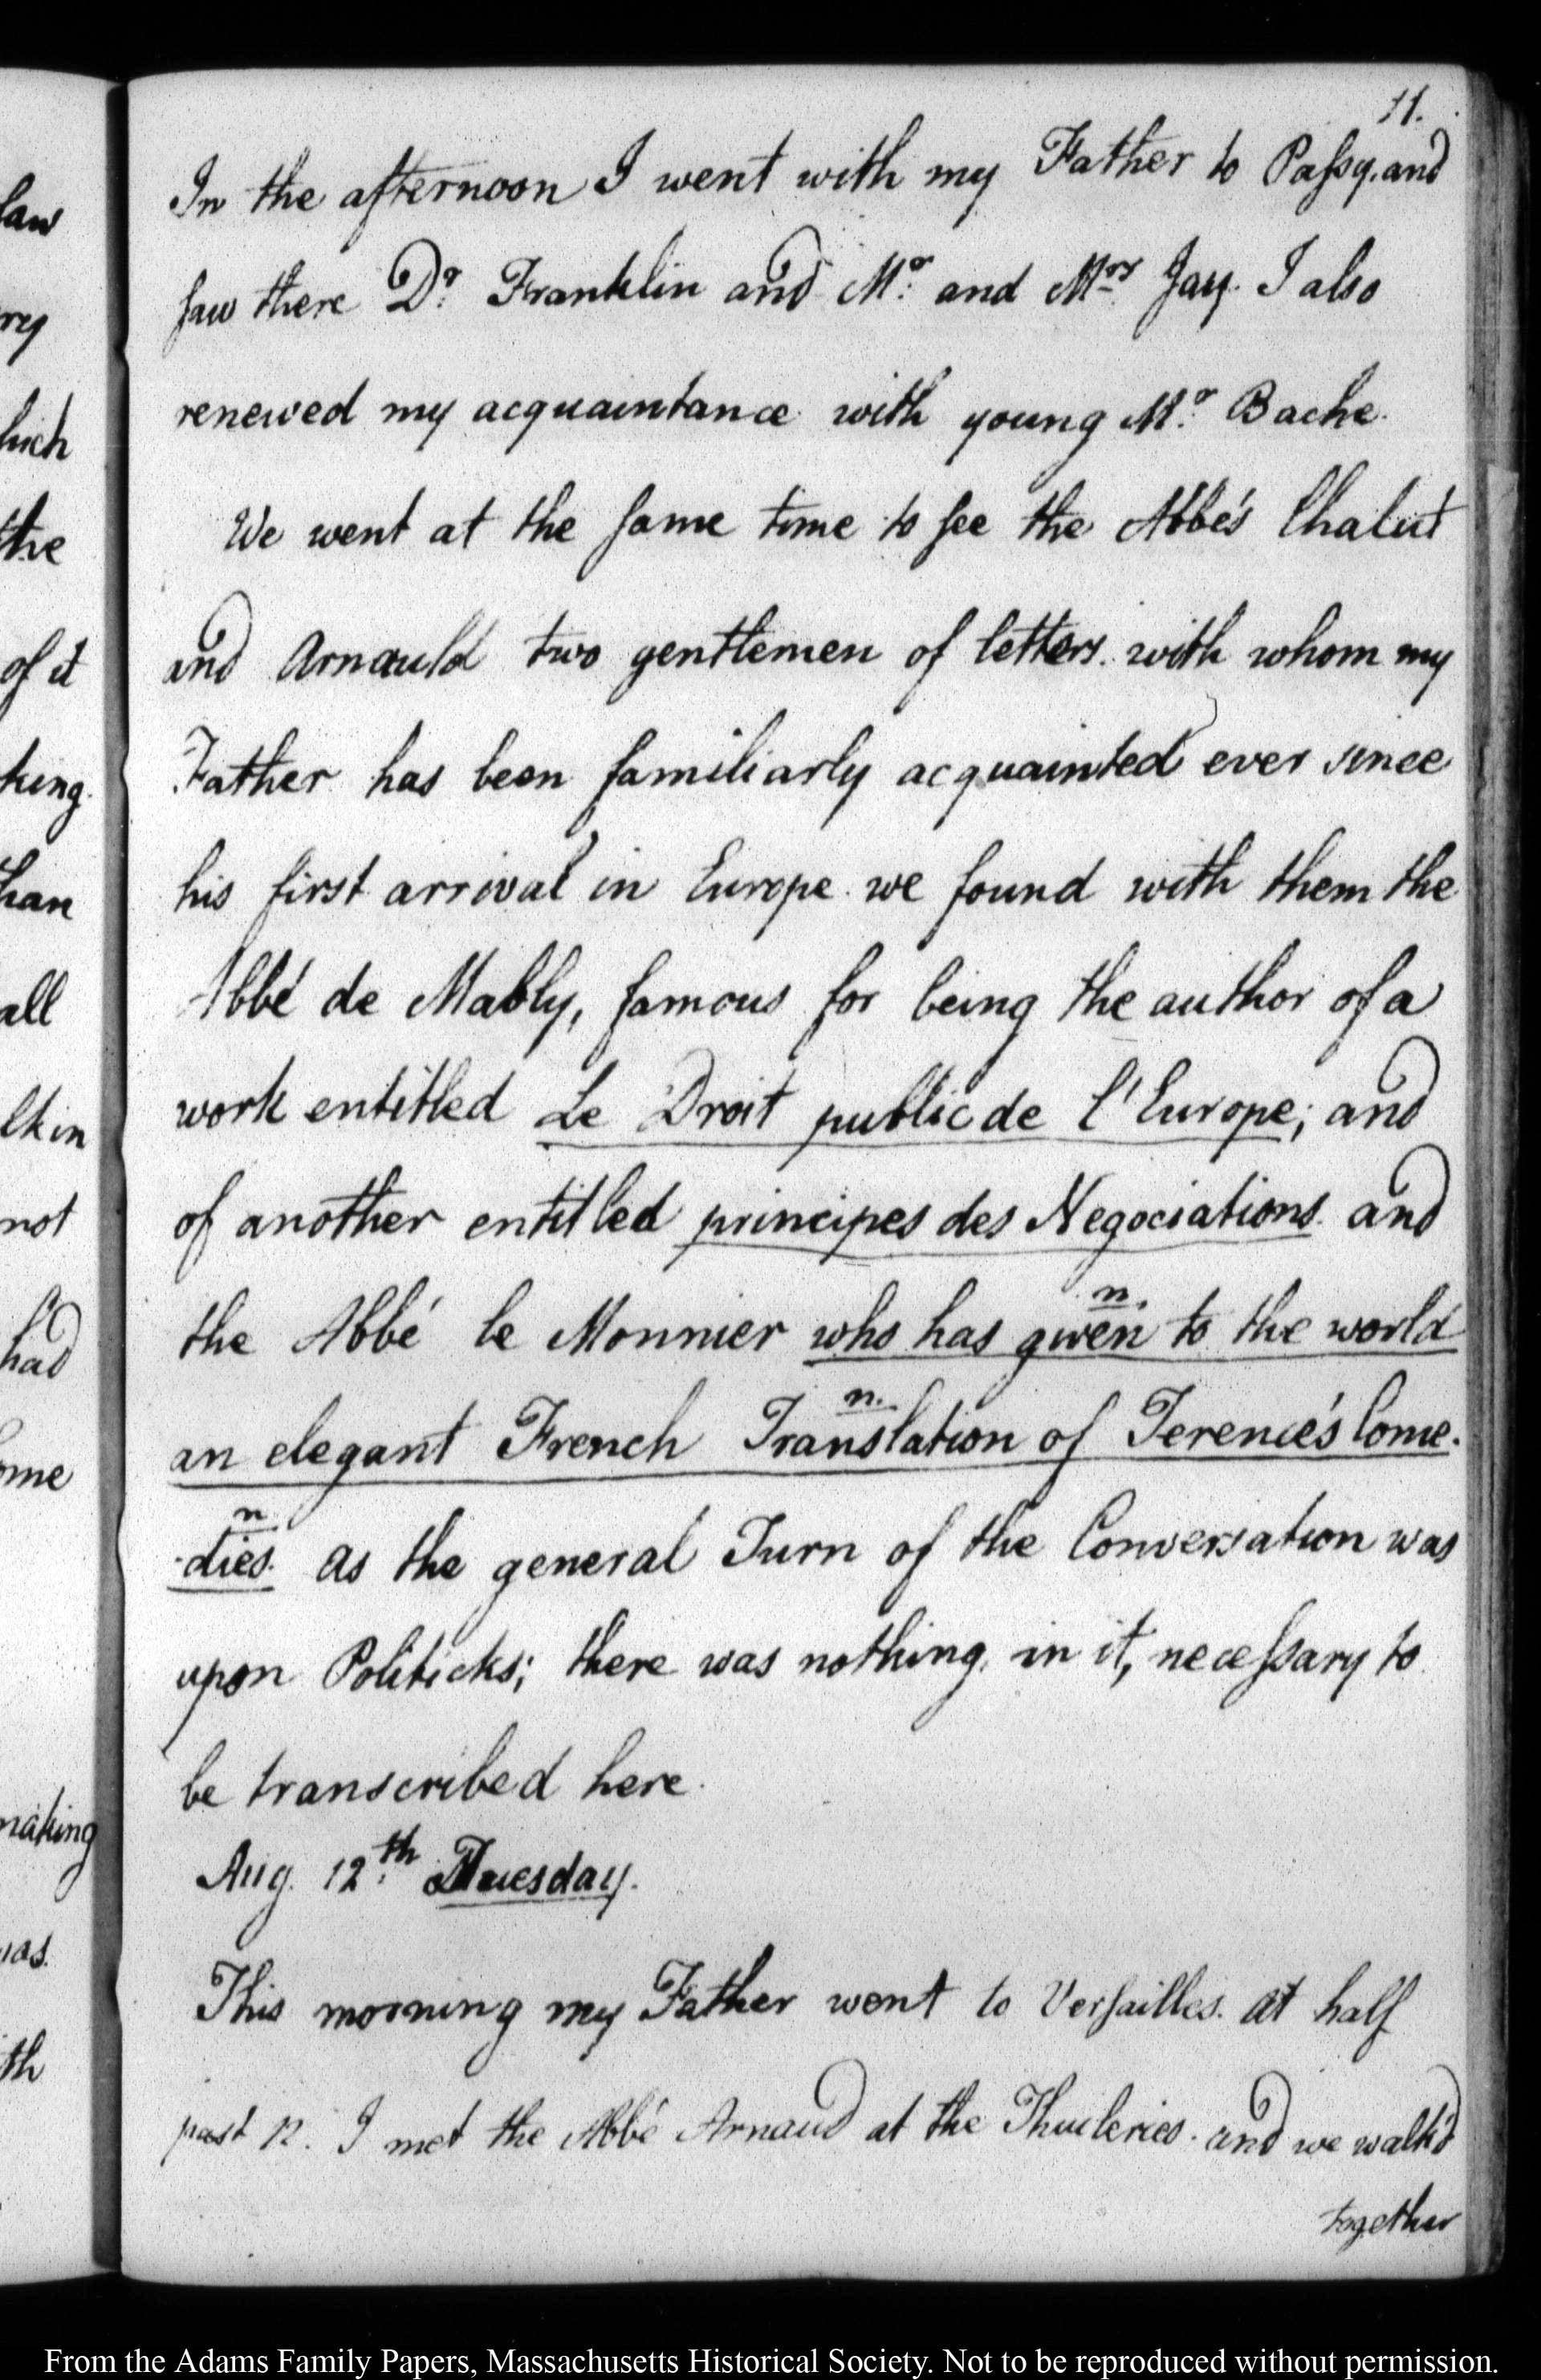 11.
In the afternoon I went with my Father to Passy, and
saw there Dr. Franklin and Mr. and Mrs. Jay. I also
renewed my acquaintance with young Mr. Bache.
We went at the same time to see the Abbé's Chalut
and Arnauld two gentlemen of letters. with whom my
Father has been familiarly acquainted ever since
his first arrival in Europe. we found with them the
Abbé de Mably, famous for being the author of a
work entitled Le Droit public de l'Europe; and
of another entitled principes des Negociations. and
the Abbé le Monnier who has given to the world
n.
an elegant French Translation of Terence's Come-
n.
-dies. as the general Turn of the Conversation was
n.
upon Politicks; there was nothing, in it, necessary to
be transcribed here.
Aug. 12.th Tuesday.
This morning my Father went to Versailles. at half
past 12. I met the Abbé Arnaud at the Thuileries. and we walk'd
together
law
rey
hich
the
of it
king.
han
all
lk in
not
had
ome
making
was.
th
From the Adams Family Papers, Massachusetts Historical Society. Not to be reproduced without permission.